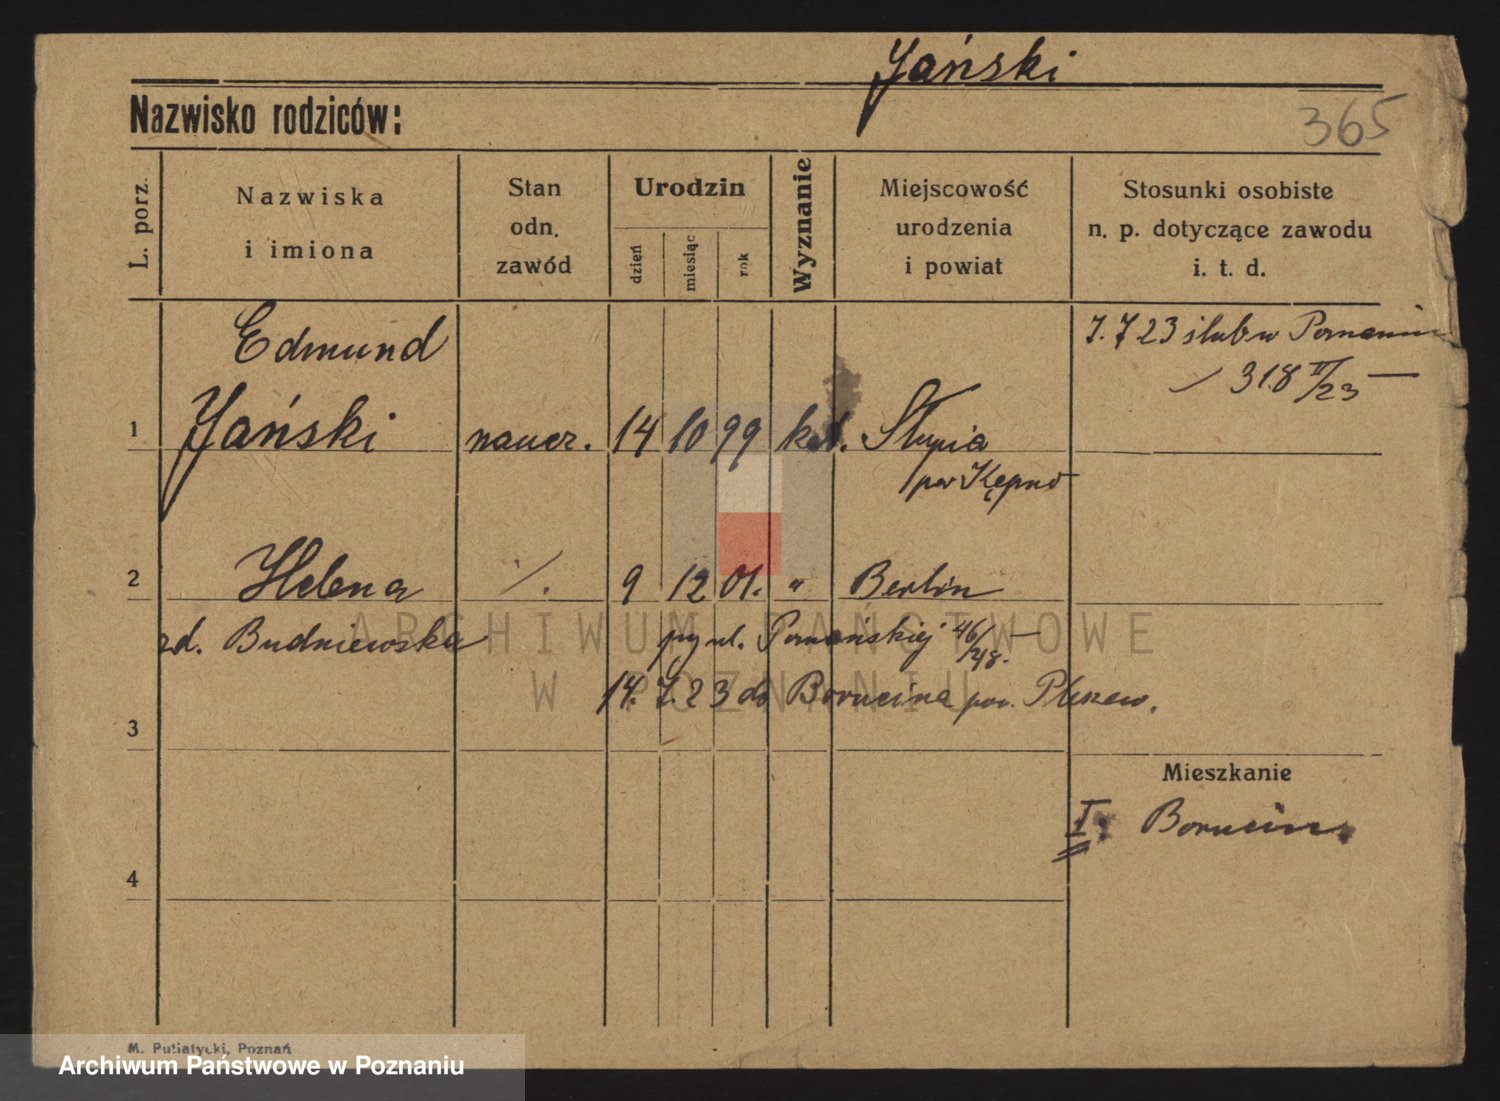 Yański
Nazwisko rodziców:
365
L. porz.
Nazwiska
i imiona
Stan
odn.
zawód
Urodzin
dzień
miesiąc
rok
Wyznanie
Miejscowość
urodzenia
i powiat
Stosunki osobiste
n. p. dotyczące zawodu
i. t. d.
7. 7 23 ślub w Poznaniu
318 II/23 —
Edmund
1 Yański naucz. 14 10 99 kat. Słupia
pow Kępno
2 Helena /. 9 12 01. " Berlin
zd. Budniewska przy ul. Poznańskiej 46/48. —
14. 7. 23 do Borucina pow. Pleszew.
3
Mieszkanie
I: Borucin.
4
M. Putiatycki, Poznań
ARCHIWUM PAŃSTWOWE
W POZNANIU
Archiwum Państwowe w Poznaniu